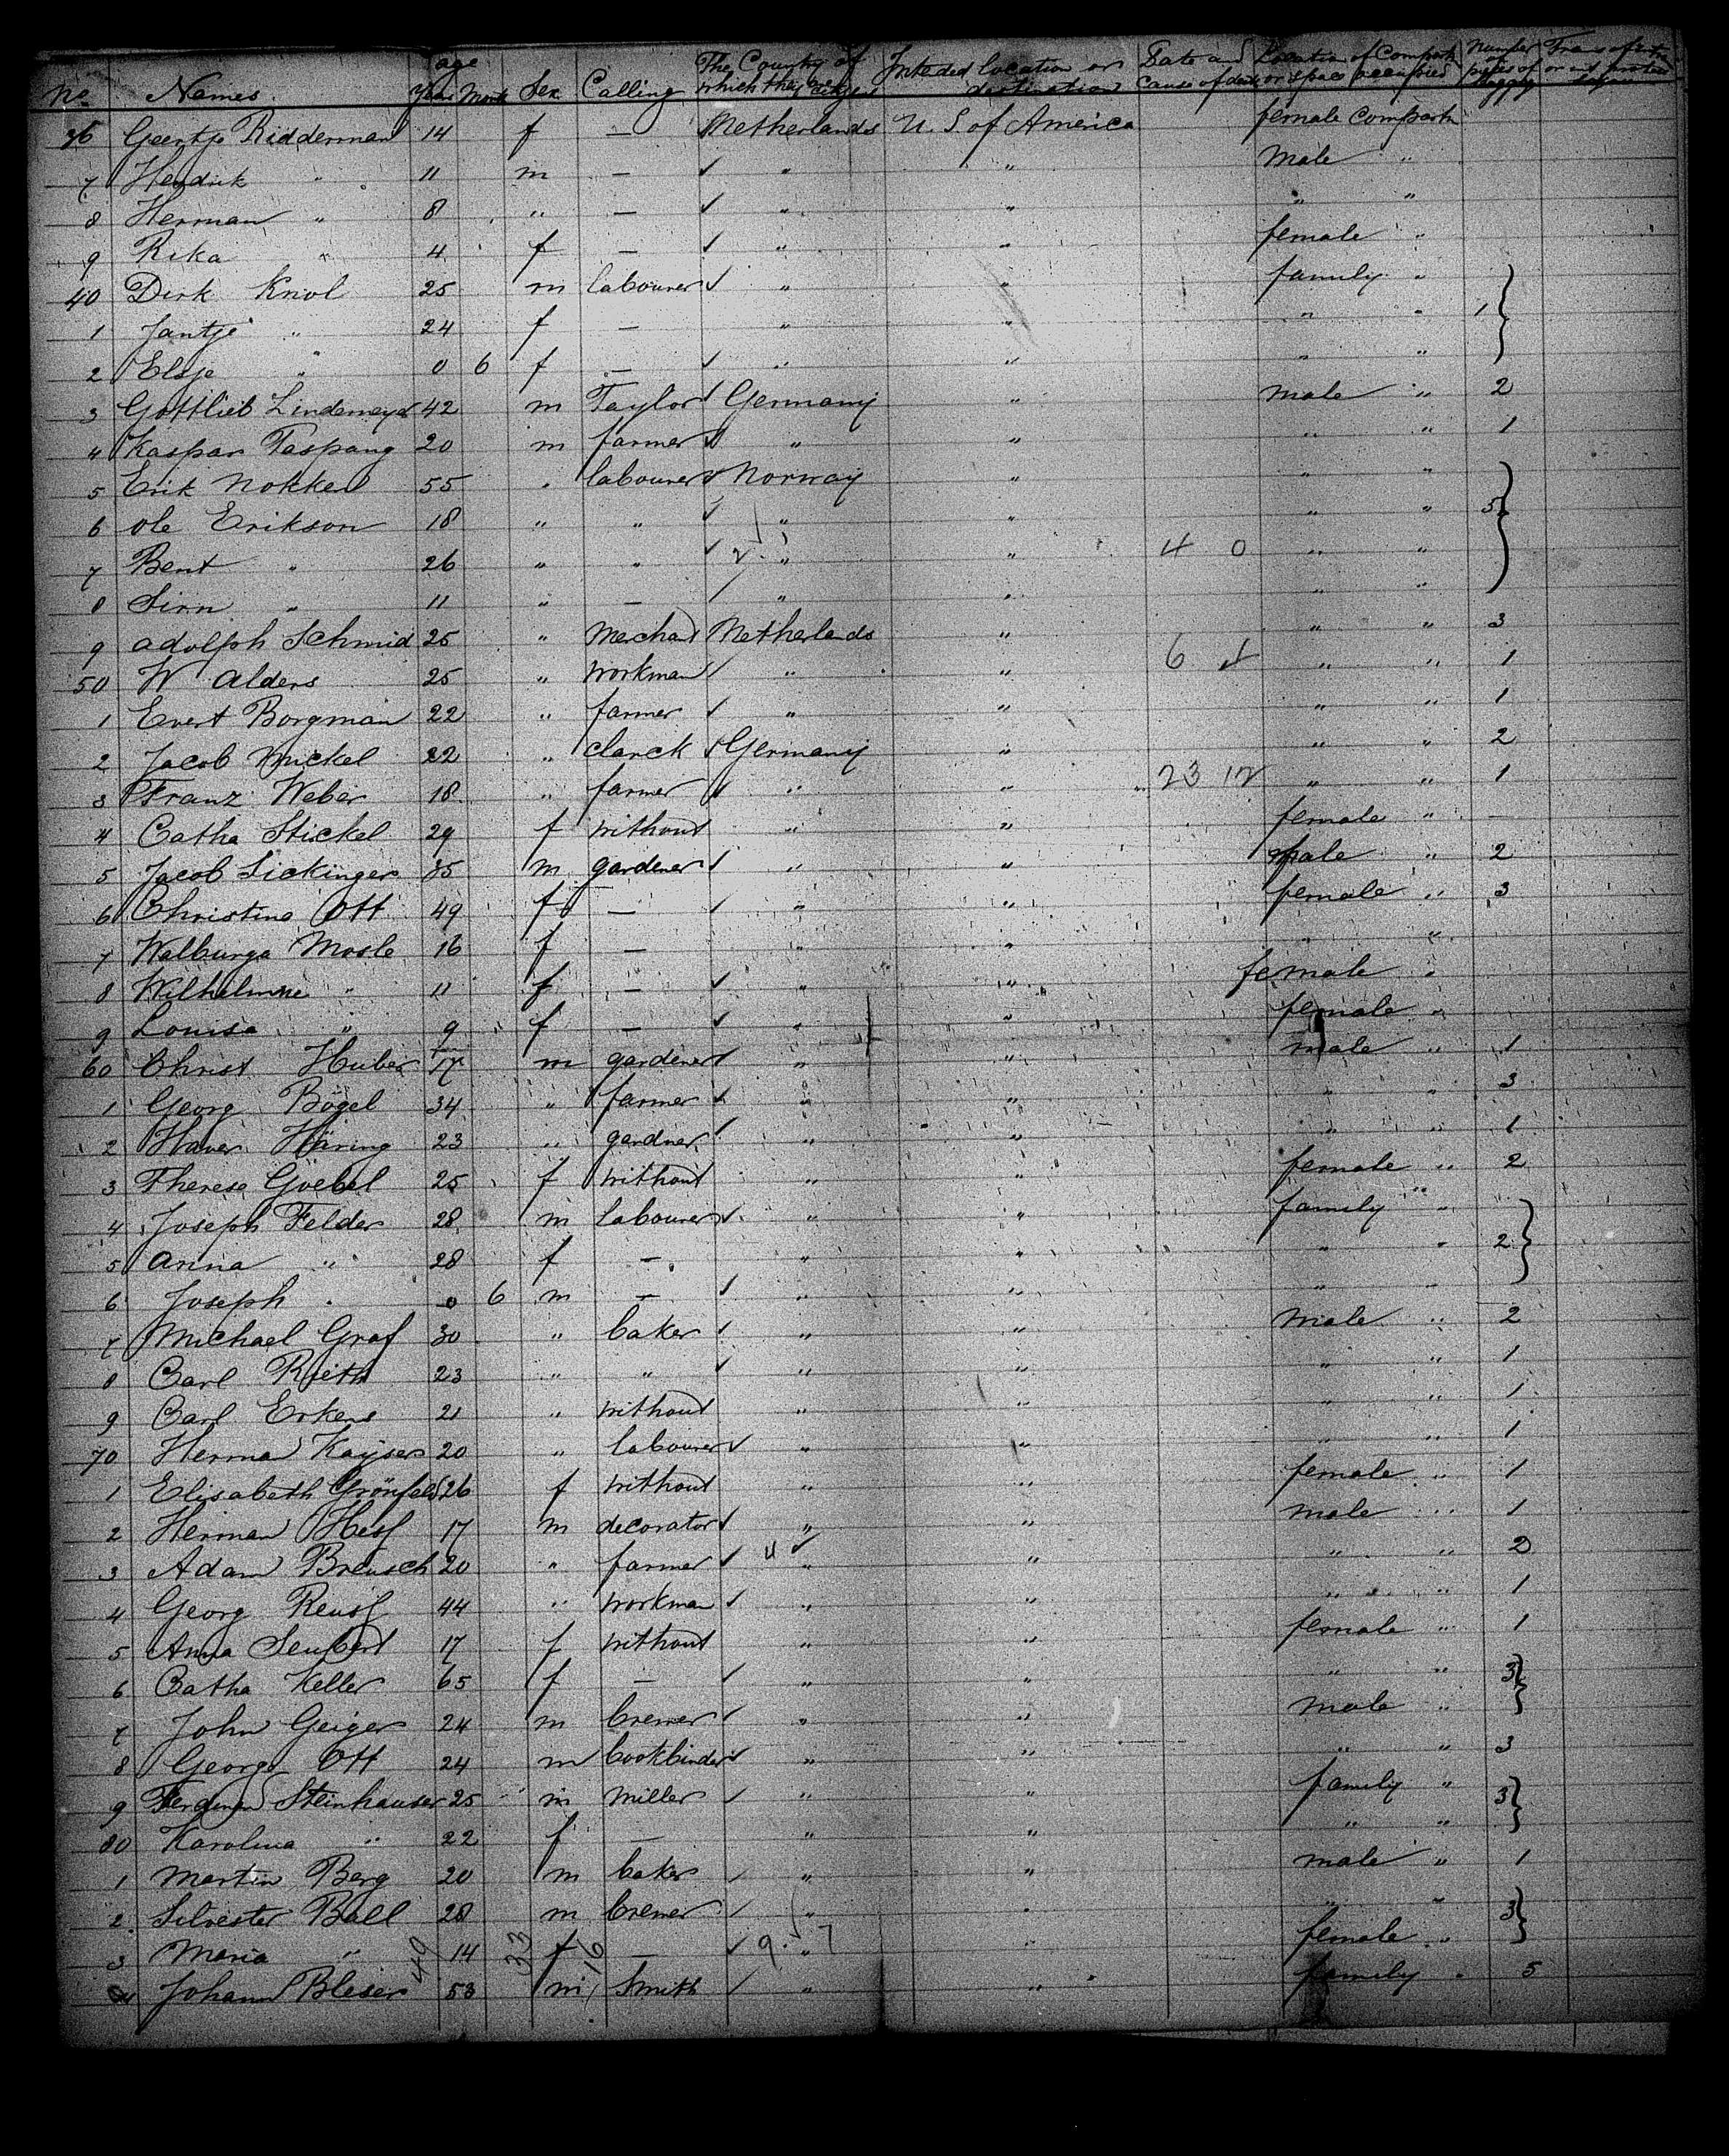 No Names age Years Month Sex Calling The Country of which they are citizens Intended location or destination Date and Cause of death Location of Compartm or space occupied Number of pieces of baggage Transient or
36 Geertje Ridderman 14 f — Netherlands U. S. of America female Compartm
7 Hendrik " 11 m — " " Male "
8 Herman " 8 " — " " " "
9 Rika " 4 f — " " female "
40 Dirk Knol 25 m labourer " " family "
1 Jantje " 24 f — " " " " 1
2 Elsje " 0 6 f — " " " "
3 Gottlieb Lindemeyer 42 m Taylor Germany " male " 2
4 Kaspar Taspang 20 m farmer " " " " 1
5 Erik Nokken 55 " labourer Norway " " "
6 Ole Erikson 18 " " " " " " 5
7 Bent " 26 " " " " 4 0 " "
8 Sirn " 11 " — " " "
9 Adolph Schmid 25 " Merchant Netherlands " " " 3
50 W Alders 25 " workman " " 6 4 " " 1
1 Evert Borgman 22 " farmer " " " " 1
2 Jacob Muckel 22 " clarck Germany " " " 2
3 Franz Weber 18 " farmer " " 23 12 " " 1
4 Catha Stickel 29 f without " " female " —
5 Jacob Sickinger 35 m gardener " " male " 2
6 Christina Ott 49 f — " " female " 3
7 Walburga Mosle 16 f — " " " "
8 Wilhelmine " 11 f — " " female "
9 Louise " 9 f — " " female "
60 Christ Huber 17 m gardener " " male " 1
1 Georg Bögel 34 " farmer " " " " 3
2 Xaver Häring 23 " gardner " " " " 1
3 Therese Goebel 25 f without " " female " 2
4 Joseph Felder 28 m labourer " " family "
5 Anna " 28 f — " " " " 2
6 Joseph " 0 6 m — " " " "
7 Michael Graf 30 " baker " " Male " 2
8 Carl Rieth 23 " " " " " " 1
9 Carl Erkens 21 " without " " " " 1
70 Herman Kayser 20 " labourer " " " " 1
1 Elisabeth Grönfeld 26 f without " " female " 1
2 Herman Hess 17 m decorator " " male " 1
3 Adam Breusch 20 " farmer " " " " 2
4 Georg Reuss 44 " workman " " " " 1
5 Anna Seubert 17 f without " " female " 1
6 Catha Keller 65 f — " " " " 3
7 John Geiger 24 m brewer " " male "
8 George Ott 24 m bookbinder " " " " 3
9 Ferdinan Steinhauser 25 m miller " " family " 3
80 Karolina " 22 f — " " " "
1 Martin Berg 20 m baker " " male " 1
2 Silvester Ball 28 m brewer " " " " 3
3 Maria " 14 f — " " female "
4 Johann Bleser 53 m Smith " " family " 5
40 33 16 9 7